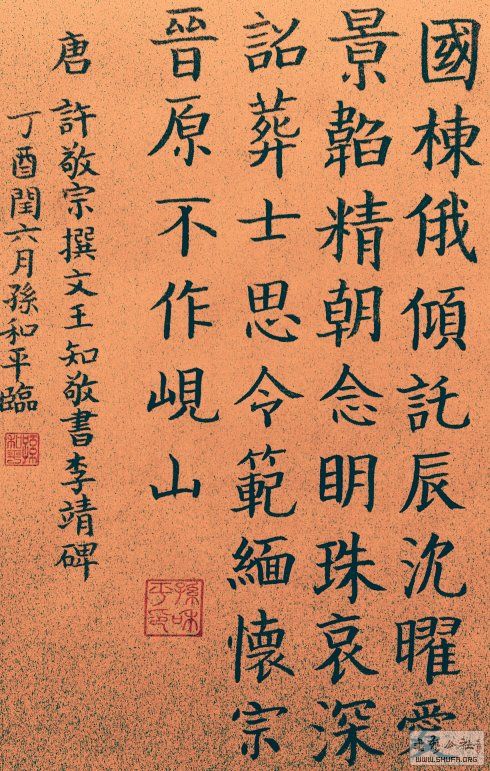 國棟俄傾託辰沈曜愛
景韜精朝念眀珠哀深
詔葬士思令範緬懷宗
晉原不作峴山
孫和平印
唐 許敬宗撰文王知敬書李靖碑
丁酉閏六月孫和平臨
孫和平
公社
WWW.SHUFA.ORG